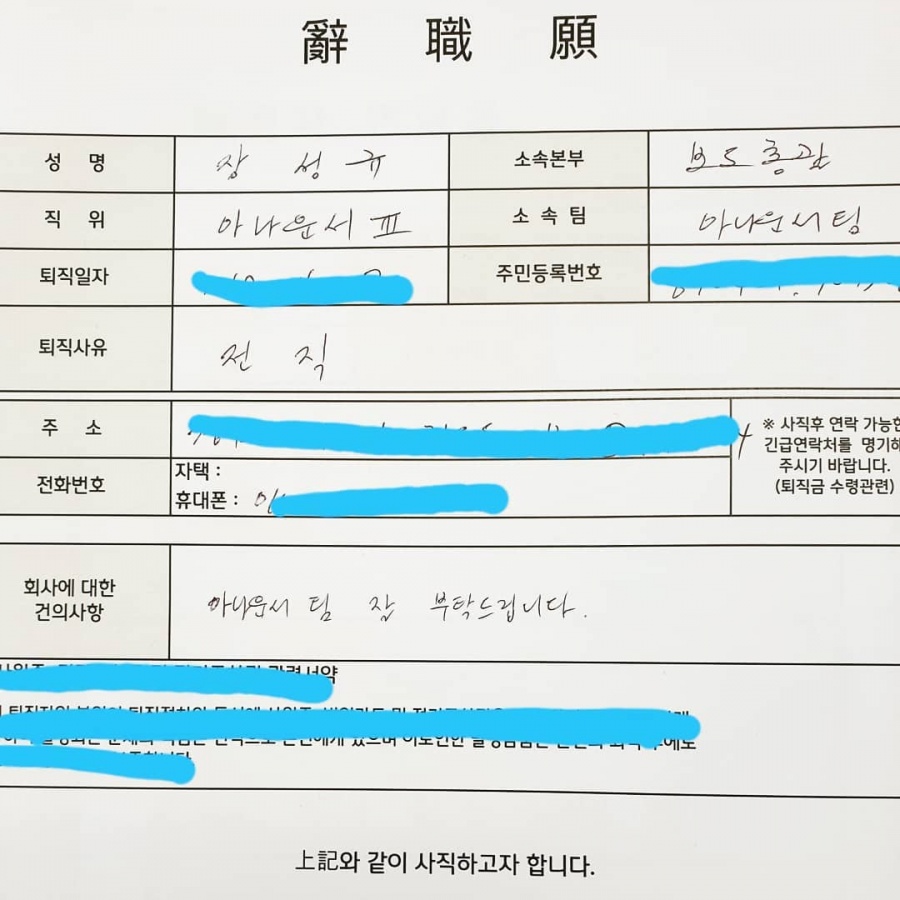 辭 職 願
성 명 장 성 규 소속본부 보도총괄
직 위 아나운서 Ⅲ 소 속 팀 아나운서팀
퇴직일자 주민등록번호
퇴직사유 전 직
주 소
※ 사직후 연락 가능한
긴급연락처를 명기해
주시기 바랍니다.
(퇴직금 수령관련)
전화번호 자택 :
휴대폰 : 01
회사에 대한
건의사항
아나운서 팀 잘 부탁드립니다.
上記와 같이 사직하고자 합니다.